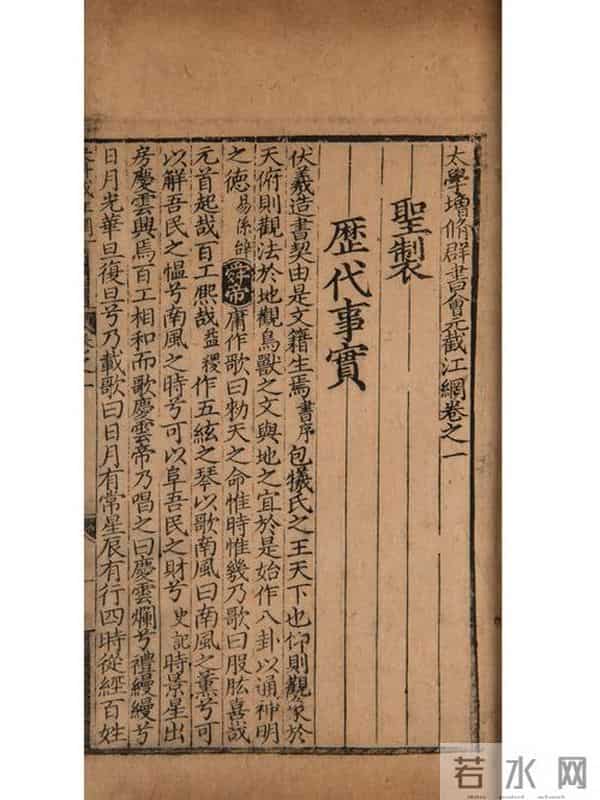 太學增脩群書會元截江網卷之一
聖製
歷代事實
伏羲造書契由是文籍生焉書序包犧氏之王天下也仰則觀象於
天俯則觀法於地觀鳥獸之文與地之宜於是始作八卦以通神明
之德易係辭舜帝庸作歌曰勑天之命惟時惟幾乃歌曰股肱喜哉
元首起哉百工熙哉益稷作五絃之琴以歌南風曰南風之薰兮可
以解吾民之愠兮南風之時兮可以阜吾民之財兮史記時景星出
房慶雲興焉百工相和而歌慶雲帝乃唱之曰慶雲爛兮禮縵縵兮
日月光華旦復旦兮乃載歌曰日月有常星辰有行四時從經百姓
若水网